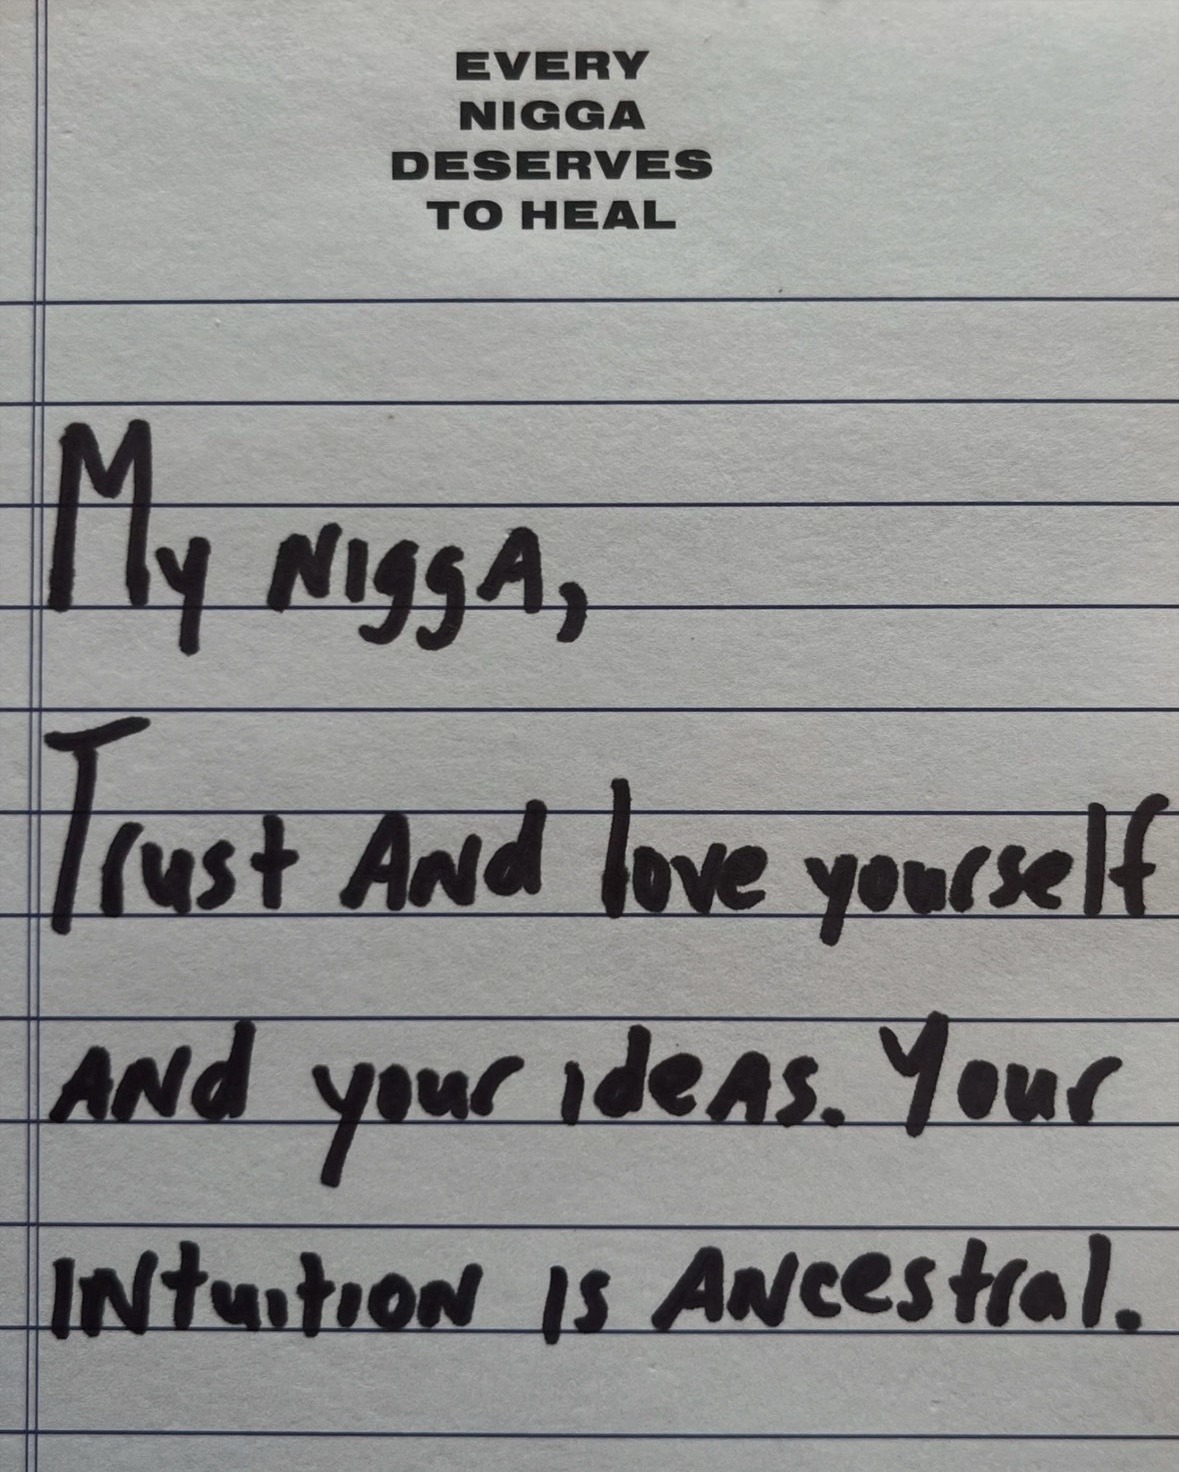 EVERY
NIGGA
DESERVES
TO HEAL
My NiggA,
Trust And love yourself
And your ideas. Your
intuition is Ancestral.